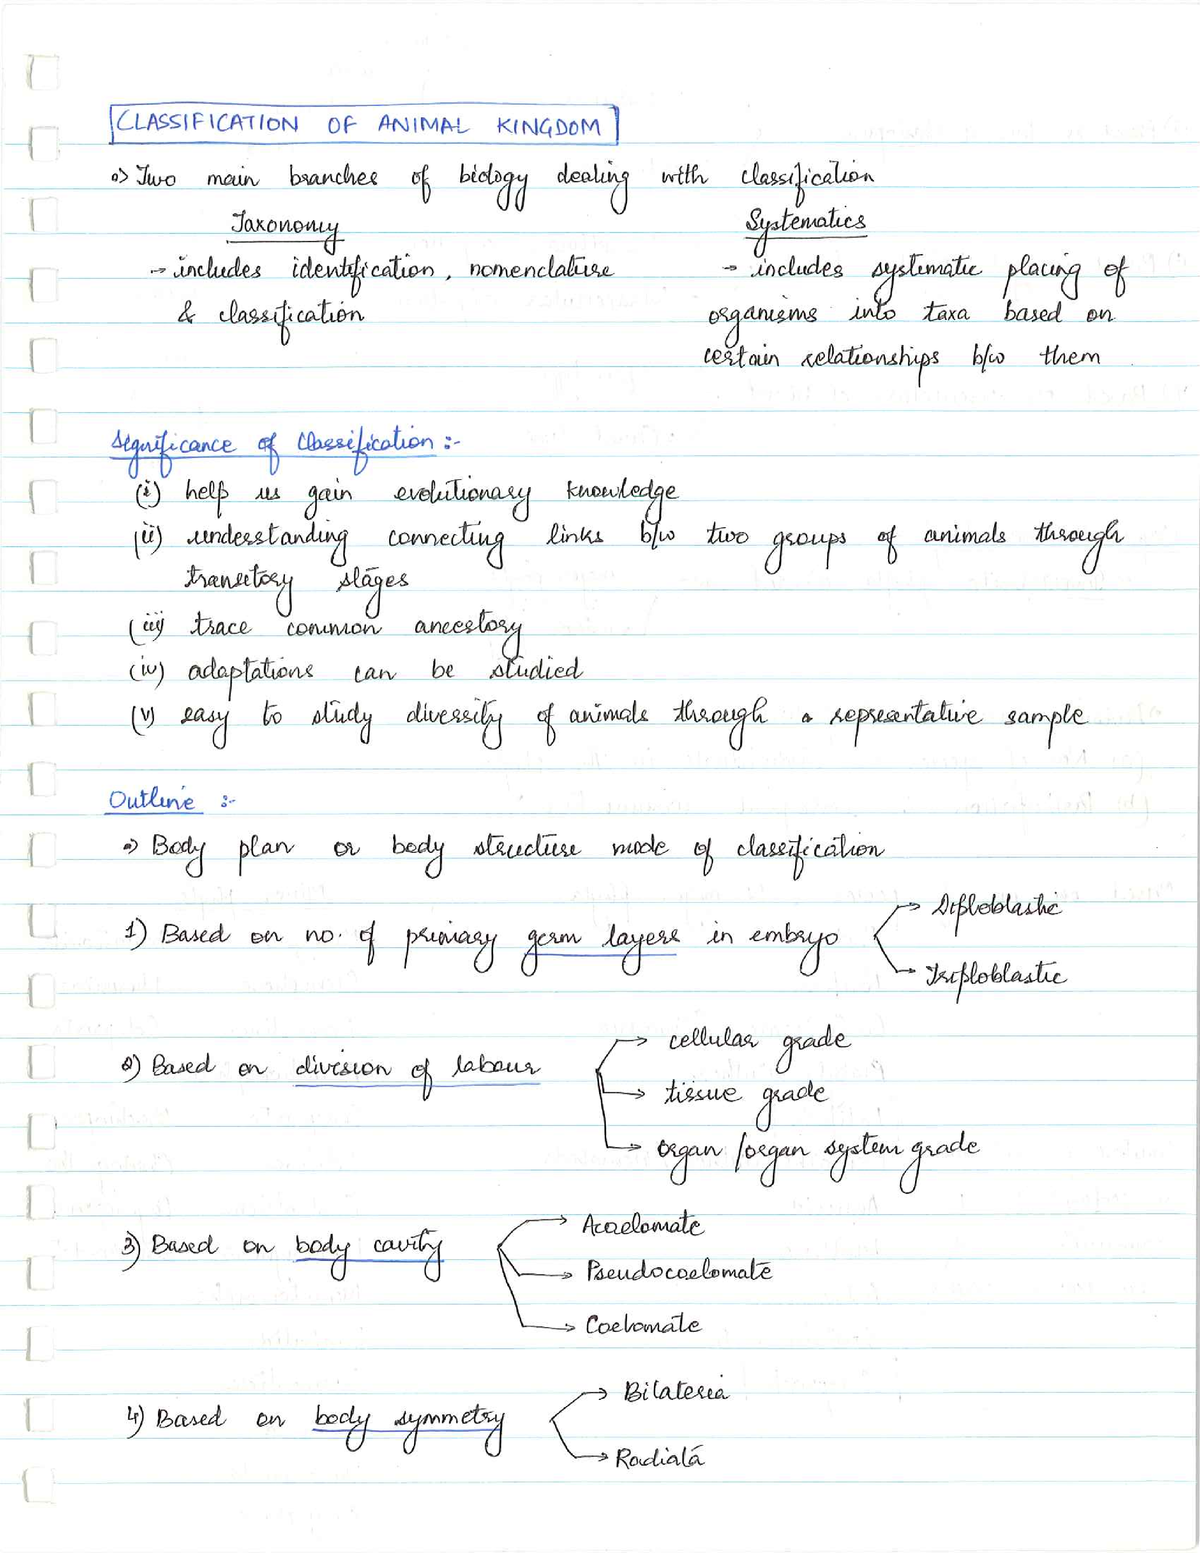 CLASSIFICATION OF ANIMAL KINGDOM
Two main branches of biology dealing with classification
Taxonomy
Systematics
→ includes identification, nomenclature
→ includes systematic placing of
& classification
organisms into taxa based on
certain relationships b/w them
Significance of Classification :-
(i) help us gain evolutionary knowledge
(ii) understanding connecting links b/w two groups of animals through
transitory stages
(iii) trace common ancestory
(iv) adaptations can be studied
(v) easy to study diversity of animals through a representative sample
Outline :-
Body plan or body structure mode of classification
1) Based on no. of primary germ layers in embryo
→ Diploblastic
→ Triploblastic
2) Based on division of labour
→ cellular grade
→ tissue grade
→ organ /organ system grade
3) Based on body cavity
→ Acoelomate
→ Pseudocoelomate
→ Coelomate
4) Based on body symmetry
→ Bilateria
→ Radiata